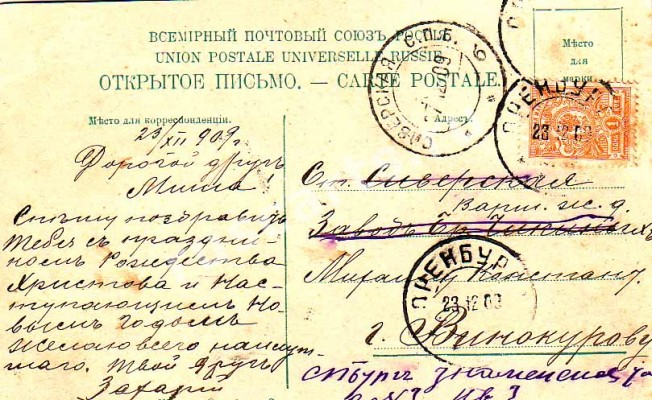 ВСЕМІРНЫЙ ПОЧТОВЫЙ СОЮЗЪ. РОССІЯ.
UNION POSTALE UNIVERSELLE. RUSSIE.
ОТКРЫТОЕ ПИСЬМО. — CARTE POSTALE.
Мѣсто
для
марки
Мѣсто для корреспонденціи.
Адресъ.
СИВЕРСКАЯ С.П.Б.
ОРЕНБУР
23 12 09
23/XII 909 г.
Дорогой другъ
Миша!
Спѣшу поздравить
тебя съ праздни
комъ Рождества
Христова и Нас
тупающимъ Но
вымъ Годомъ
желаю всего наилут
шаго. Твой другъ
Захарій
Ст. Сиверская
Варш. ж. д.
Заводъ Бр.
Михаилу Констант.
г. Винокурову
ОРЕНБУР
23 12 09
СПбургъ Знаменская